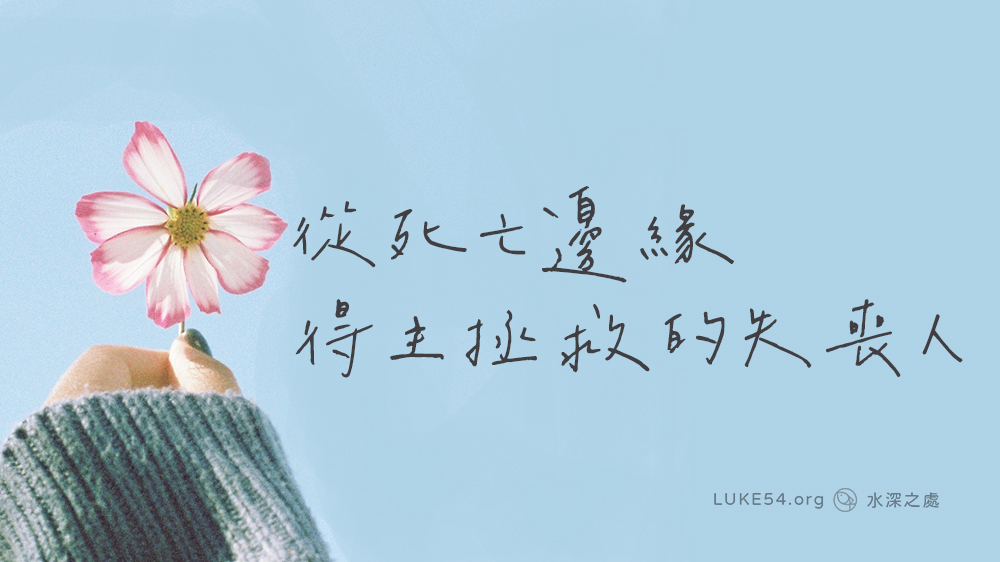 從死亡邊緣
得主拯救的失喪人
LUKE54.org 水深之處